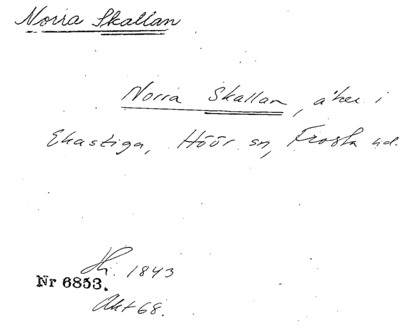 Norra Skallan
Norra Skallan, åker i
Ekastiga, Höör sn, Frosta hd.
Hi. 1843
Nr 6853.
Akt 68.